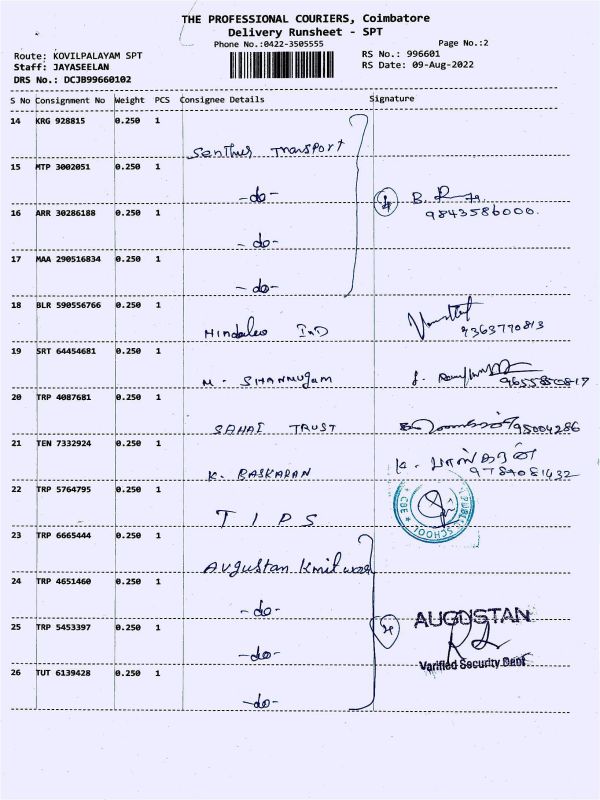 THE PROFESSIONAL COURIERS, Coimbatore
Delivery Runsheet - SPT
Phone No.:0422-3505555 Page No.:2
Route: KOVILPALAYAM SPT RS No.: 996601
Staff: JAYASEELAN RS Date: 09-Aug-2022
DRS No.: DCJB99660102
S No Consignment No Weight PCS Consignee Details Signature
14 KRG 928815 0.250 1
Senthur Transport
15 MTP 3002051 0.250 1
-do-
4 B.
16 ARR 30286188 0.250 1 9843586000.
-do-
17 MAA 290516834 0.250 1
-do-
18 BLR 590556766 0.250 1
Hindalco IND 9363770813
19 SRT 64454681 0.250 1
M. SHANMUgam 9655850817
20 TRP 4087681 0.250 1
SAHAI TRUST 95004286
21 TEN 7332924 0.250 1
K. BASKARAN K. பாஸ்கரன்
9789081432
22 TRP 5764795 0.250 1
TIPS PUBLIC SCHOOL CBE
23 TRP 6665444 0.250 1
Avgustan Knitwear
24 TRP 4651460 0.250 1
-do- AUGUSTAN
25 TRP 5453397 0.250 1 4
-do- Varified Security Dept
26 TUT 6139428 0.250 1
-do-